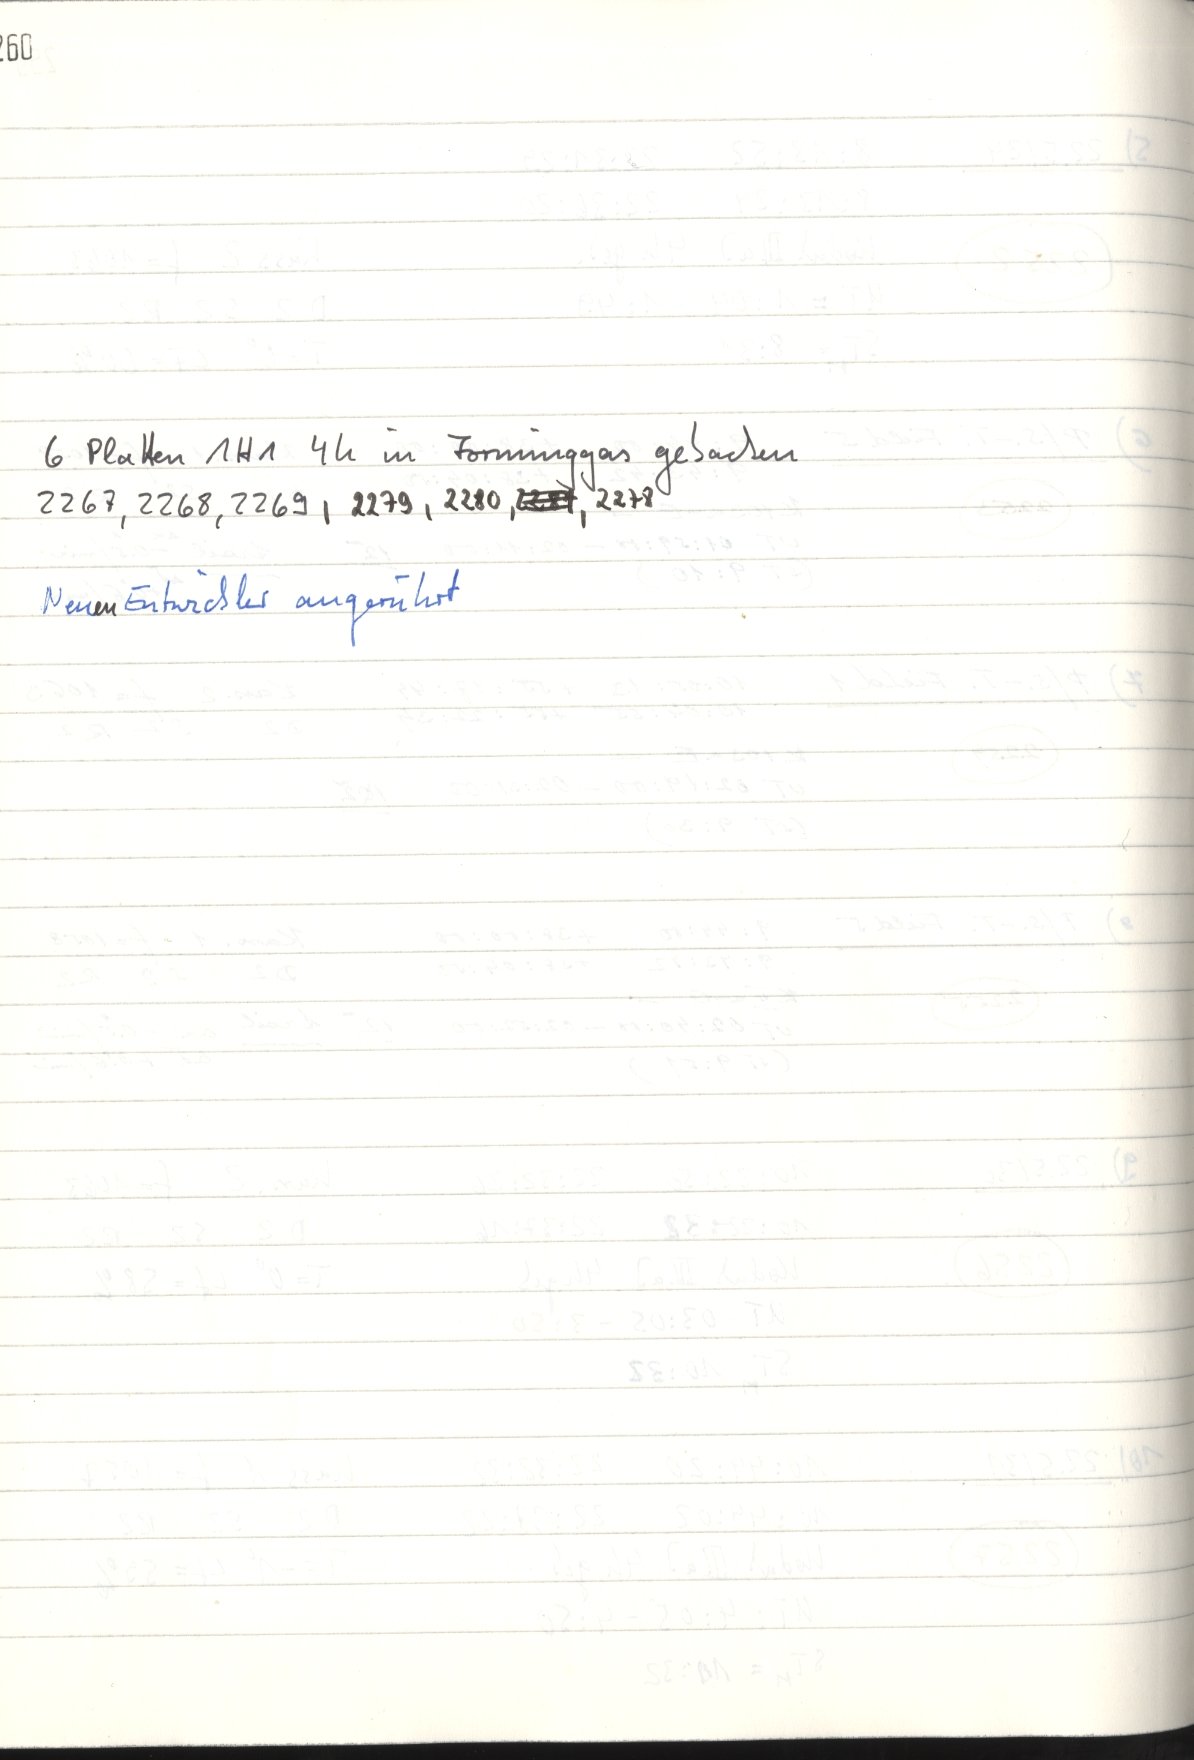 260
6 Platten 1H1 4h in Forminggas gebacken
2267, 2268, 2269, 2279, 2280, 2278
Neuen Entwickler angerührt